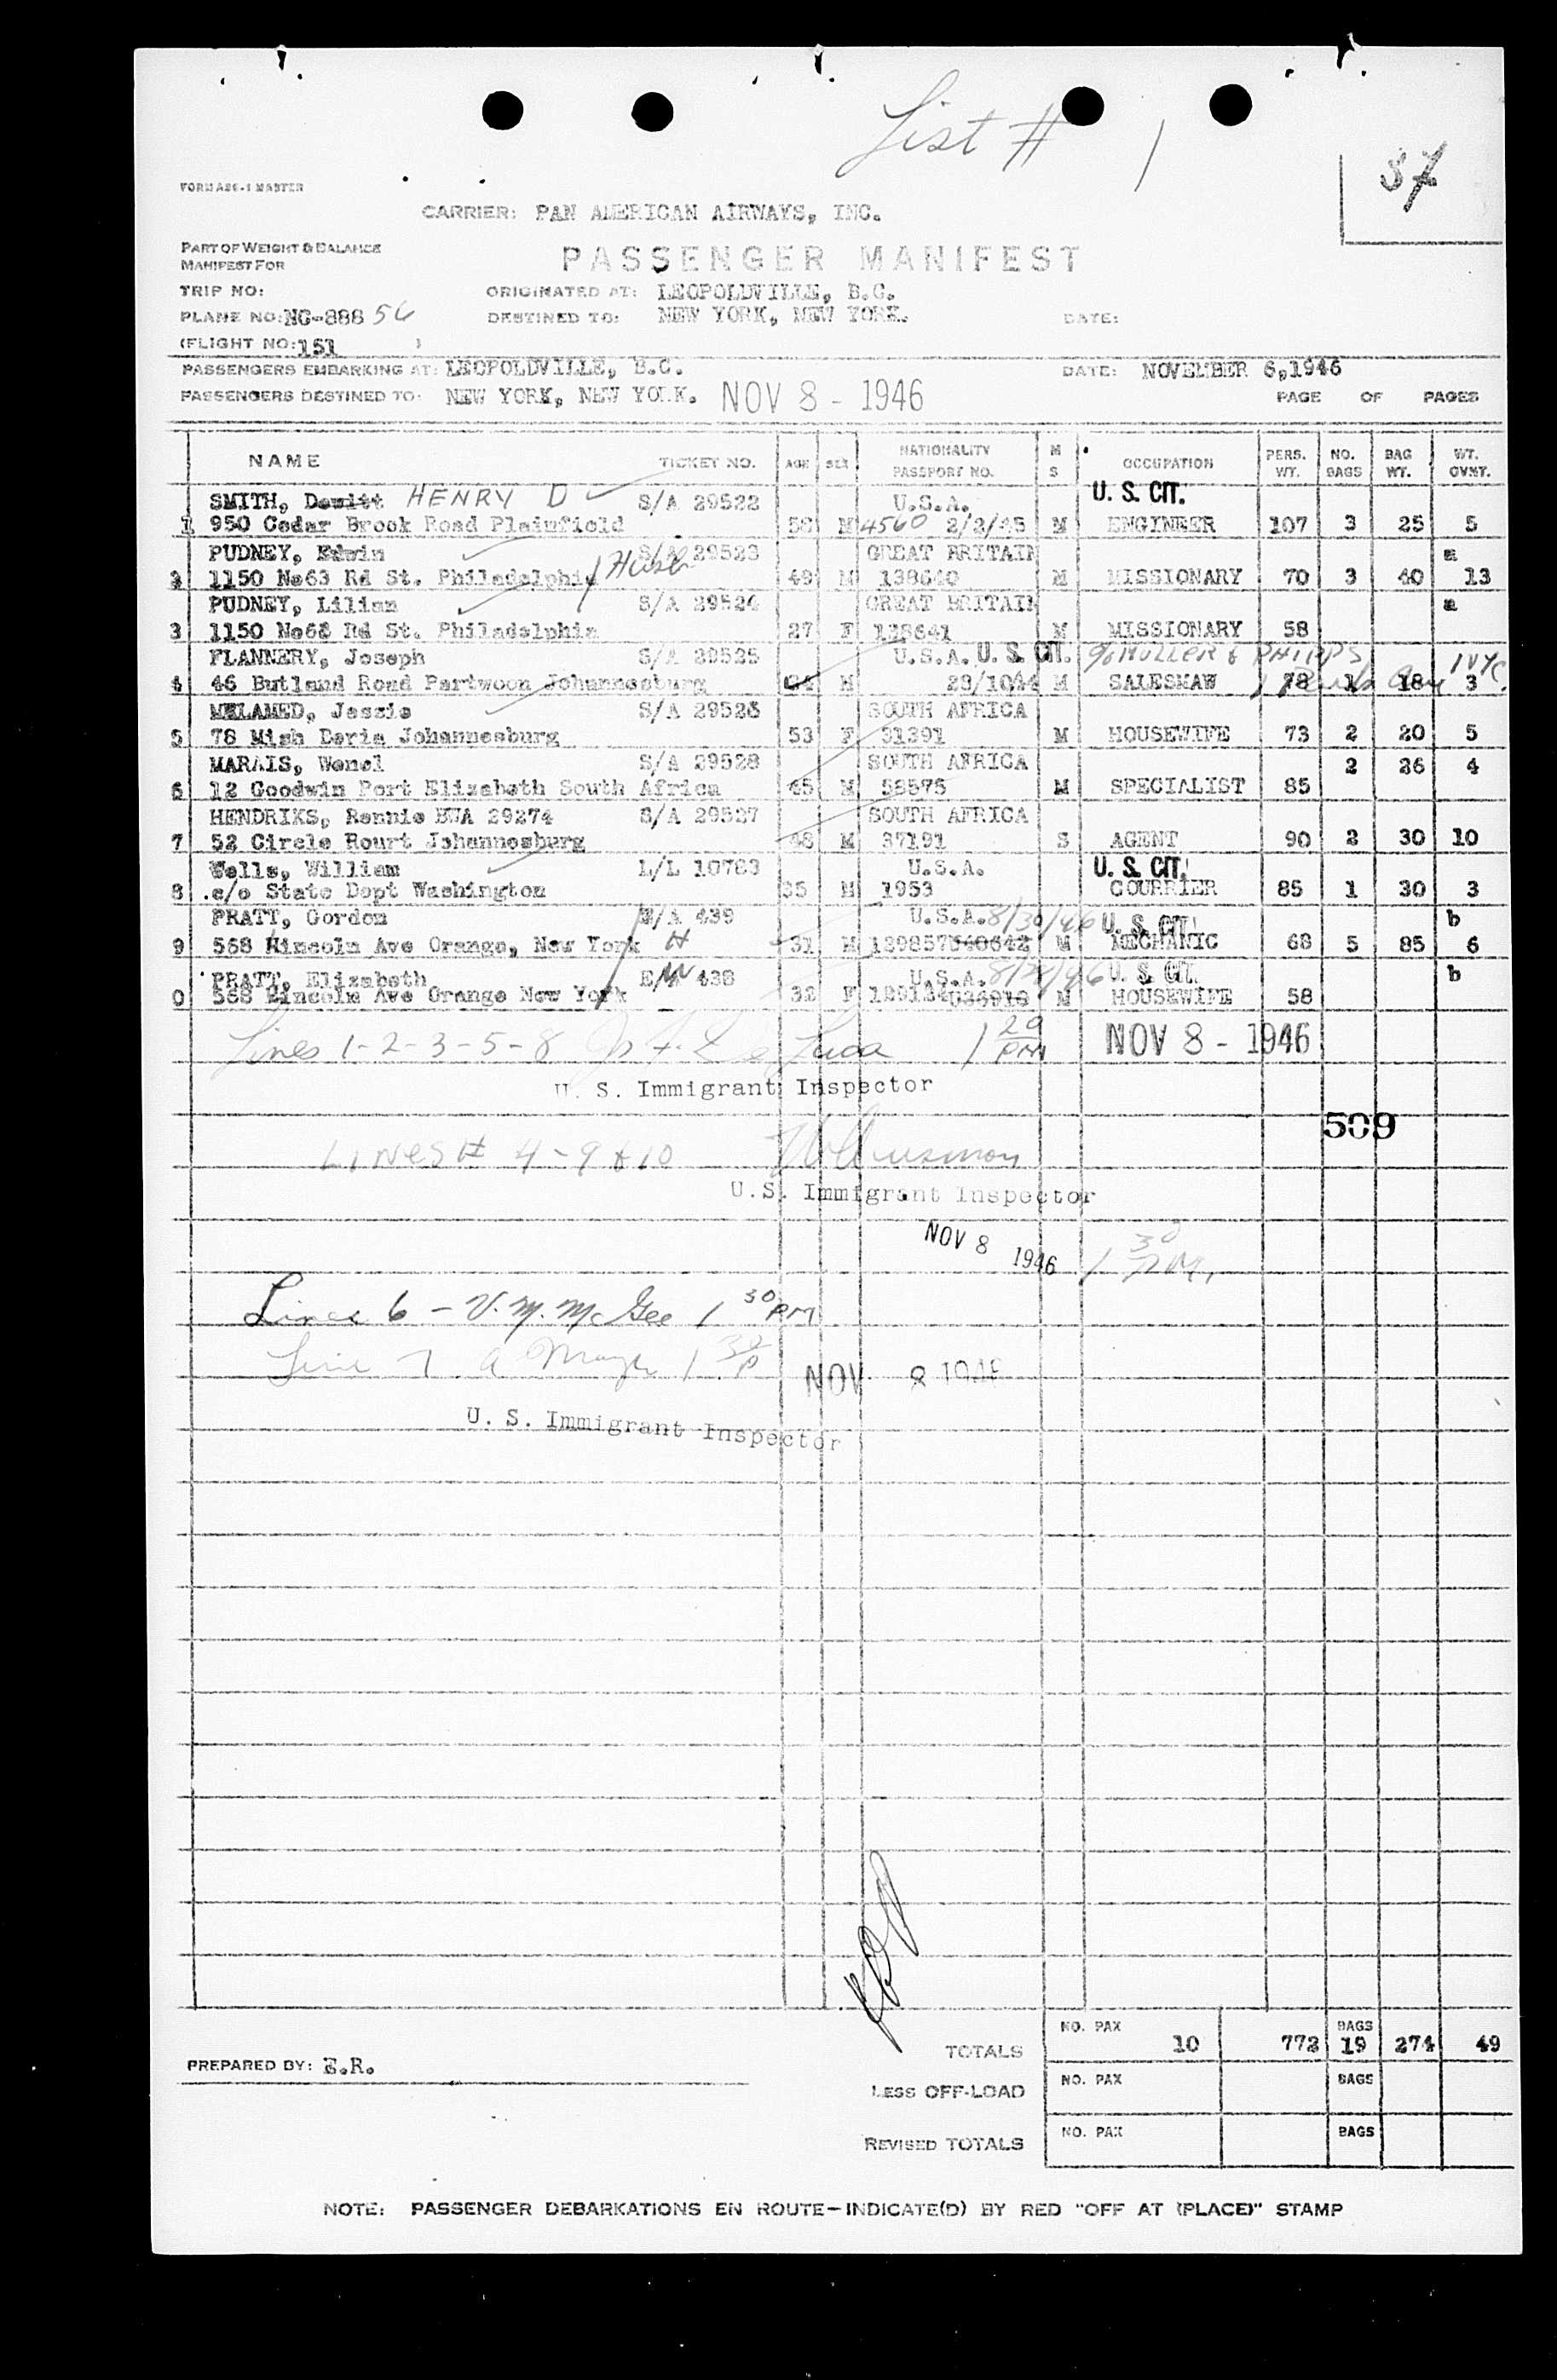 List # 1
37
FORM A86-1 MASTER
CARRIER: PAN AMERICAN AIRWAYS, INC.
PART OF WEIGHT & BALANCE
MANIFEST FOR
PASSENGER MANIFEST
TRIP NO: ORIGINATED AT: LEOPOLDVILLE, B.C.
PLANE NO: NC-888 56 DESTINED TO: NEW YORK, NEW YORK. DATE:
(FLIGHT NO: 151 )
PASSENGERS EMBARKING AT: LEOPOLDVILLE, B.C. DATE: NOVEMBER 6, 1946
PASSENGERS DESTINED TO: NEW YORK, NEW YORK. NOV 8 - 1946 PAGE OF PAGES
NAME TICKET NO. AGE SEX NATIONALITY PASSPORT NO. M S OCCUPATION PERS. WT. NO. BAGS BAG WT. WT. OVWT.
SMITH, Dewitt HENRY D S/A 29522 U.S.A. U. S. CIT.
1 950 Cedar Brook Road Plainfield 58 M 4560 2/2/45 M ENGINEER 107 3 25 5
PUDNEY, Edwin S/A 29523 GREAT BRITAIN a
2 1150 No63 Rd St. Philadelphia Husb 49 M 138640 M MISSIONARY 70 3 40 13
PUDNEY, Lilian S/A 29524 GREAT BRITAIN a
3 1150 No63 Rd St. Philadelphia 27 F 138641 M MISSIONARY 58
FLANNERY, Joseph S/A 29525 U.S.A. U. S. CIT. c/o MULLER & PHIPPS
4 46 Butland Road Partwoon Johannesburg M 29/10/44 M SALESMAN 78 1 18 3 NYC.
MELAMED, Jessie S/A 29526 SOUTH AFRICA
5 78 Mish Daria Johannesburg 53 F 31391 M HOUSEWIFE 73 2 20 5
MARAIS, Wencl S/A 29528 SOUTH AFRICA 2 26 4
6 12 Goodwin Port Elizabeth South Africa 45 M 58575 M SPECIALIST 85
HENDRIKS, Rennie BWA 29274 S/A 29527 SOUTH AFRICA
7 52 Circle Hourt Johannesburg 48 M 37191 S AGENT 90 2 30 10
Wells, William L/L 10783 U.S.A. U. S. CIT.
8 .c/o State Dept Washington 35 M 1953 COURRIER 85 1 30 3
PRATT, Gordon E/A 439 U.S.A. 8/30/46 U. S. CIT. b
9 568 Lincoln Ave Orange, New York H 31 M 129857 540642 M MECHANIC 68 5 85 6
PRATT, Elizabeth E/A W 438 U.S.A. 8/21/46 U. S. CIT. b
0 568 Lincoln Ave Orange New York 32 F M HOUSEWIFE 58
Lines 1-2-3-5-8 1 20 PM NOV 8 - 1946
U. S. Immigrant Inspector
509
LINES # 4-9 & 10
U.S. Immigrant Inspector
NOV 8 1946 1 30 P.M.
Line 6 - V. M. McGee 1 30 PM
Line 7 1 30 P NOV 8 1946
U. S. Immigrant Inspector
TOTALS NO. PAX 10 772 BAGS 19 274 49
PREPARED BY: E.R.
LESS OFF-LOAD NO. PAX BAGS
REVISED TOTALS NO. PAX BAGS
NOTE: PASSENGER DEBARKATIONS EN ROUTE—INDICATE(D) BY RED "OFF AT (PLACE)" STAMP